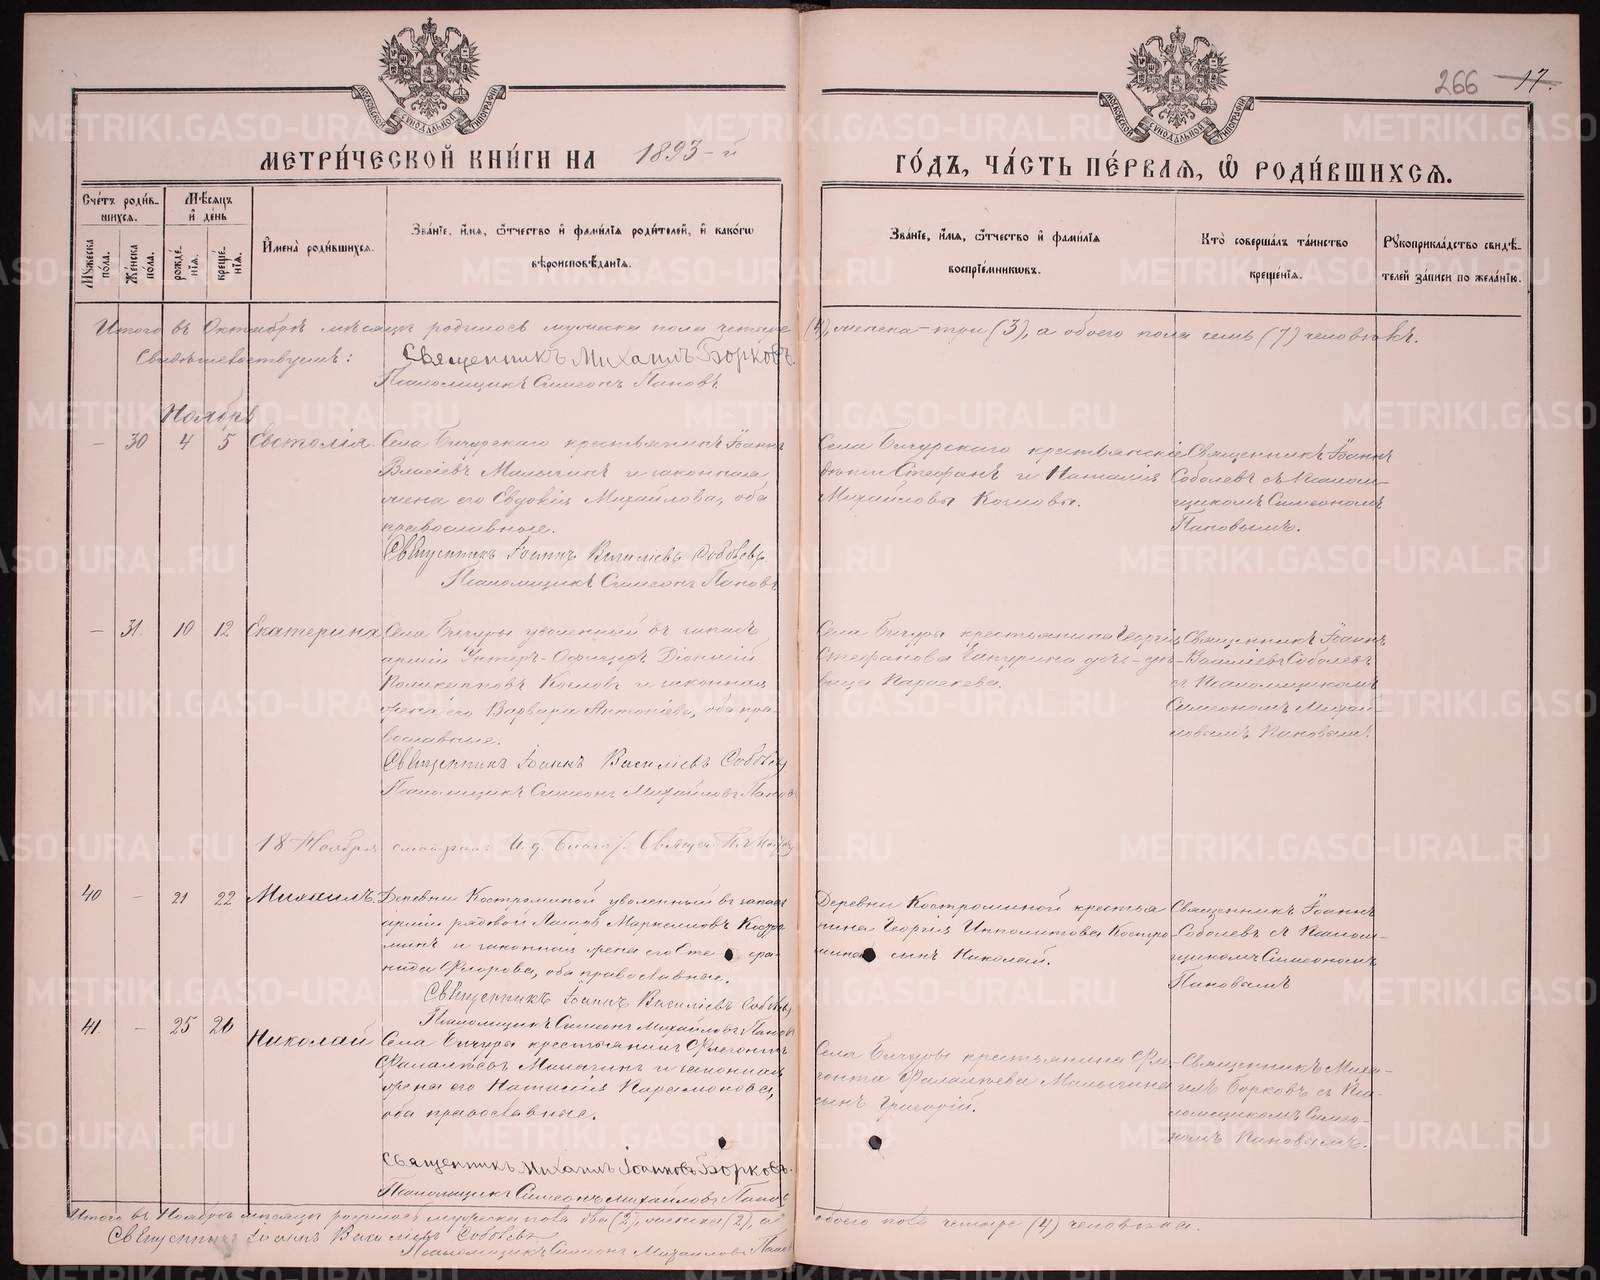 266 17.
МОСКОВСКОЙ СѴНОДАЛЬНОЙ ТИПОГРАФІИ
МОСКОВСКОЙ СѴНОДАЛЬНОЙ ТИПОГРАФІИ
МЕТРИ́ЧЕСКОЙ КНИ́ГИ НА 1893-й
ГО́ДЪ, ЧА́СТЬ ПЕ́РВАЯ, Ѡ РОДИ́ВШИХСЯ.
Сче́тъ роди́вшихся.
Мѣсяцъ и́ де́нь
Му́жеска по́ла.
Же́нска по́ла.
рожде́нїя.
креще́нїя.
И́мена̀ роди́вшихся.
Зва́нїе, и́мя, ѻ́тчество и́ фами́лїя роди́телей, и́ како́гѡ
вѣроисповѣ́данїя.
Зва́нїе, и́мя, ѻ́тчество и́ фами́лїя
воспрїе́мникѡвъ.
Кто̀ соверша́лъ та́инство
креще́нїя.
Рꙋкоприкла́дство свидѣ́телей за́писи по жела́нїю.
Итого въ Октябрѣ мѣсяцѣ родилось мужеска пола четыре (4), женска - три (3), а обоего пола семь (7) человѣкъ.
Свидѣтельствуемъ: Священникъ Михаилъ Борковъ.
Псаломщикъ Симеонъ Пановъ
Ноябрь
— 30 4 5
Села Бичурскаго крестьянинъ Іоаннъ
Власіевъ Малыгинъ и законная
жена его Евдокія Михайлова, оба
православные.
Священникъ Іоаннъ Василіевъ Соболевъ
Псаломщикъ Симеонъ Пановъ
Села Бичурскаго крестьянскіе
дѣти Стефанъ и Наталія
Михайловы Козловы.
Священникъ Іоаннъ
Соболевъ съ Псаломщикомъ Симеономъ
Пановымъ.
— 31. 10 12 Екатерина
Села Бичуры уволенный въ запасъ
арміи Унтеръ-Офицеръ Діонисій
Поликарповъ Козловъ и законная
жена его Варвара Антоніева, оба православные.
Священникъ Іоаннъ Василіевъ Соболевъ
Псаломщикъ Симеонъ Михайловъ Пановъ
Села Бичуры крестьянина Георгія
Стефанова дочь-дѣвица Параскева.
Священникъ Іоаннъ
Василіевъ Соболевъ
съ Псаломщикомъ
Симеономъ Михайловымъ Пановымъ.
18 Ноября
40 — 21 22 Михаилъ.
Деревни Костроминой уволенный въ запасъ
арміи рядовой Маркелловъ Костроминъ и законная жена его Стефанида Флорова, оба православные.
Священникъ Іоаннъ Василіевъ Соболевъ
Псаломщикъ Симеонъ Михайловъ Пановъ
Деревни Костроминой крестьянина Георгія Ипполитова Костромина сынъ Николай.
Священникъ Іоаннъ
Соболевъ съ Псаломщикомъ Симеономъ
Пановымъ
41. — 25 26 Николай
Села Бичуры крестьянинъ Флегонтъ
Малыгинъ и законная
жена его Наталія Парамонова,
оба православные.
Священникъ Михаилъ Іоанновъ Борковъ.
Псаломщикъ Симеонъ Михайловъ Пановъ
Села Бичуры крестьянина Флегонта Малыгина
сынъ Григорій.
Священникъ Михаилъ Борковъ съ Псаломщикомъ Симеономъ Пановымъ.
Итого въ Ноябрѣ мѣсяцѣ родилось мужеска пола два (2), женска (2), а обоего пола четыре (4) человѣка.
Священникъ Іоаннъ Василіевъ Соболевъ
Псаломщикъ Симеонъ Михайловъ Пановъ
METRIKI.GASO-URAL.RU